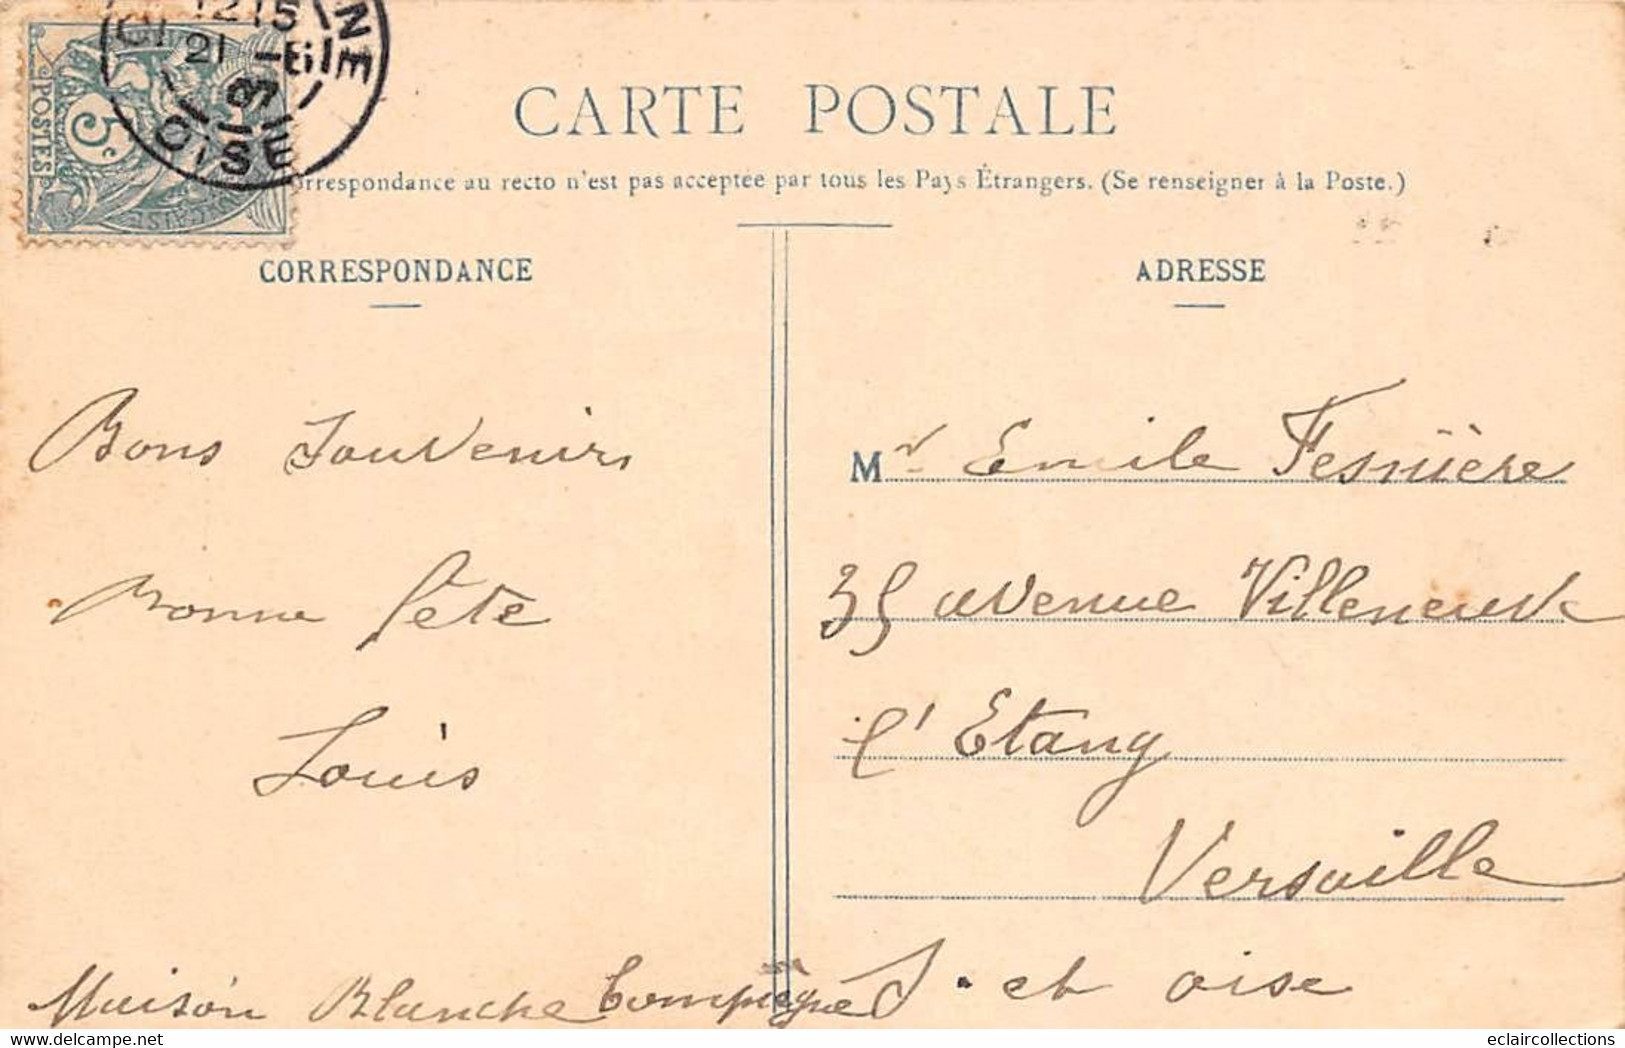 POSTES
5c
12 15
21 -5
OISE
CARTE POSTALE
orrespondance au recto n'est pas acceptée par tous les Pays Étrangers. (Se renseigner à la Poste.)
CORRESPONDANCE
Bons Souvenirs
Bonne fête
Louis
Maison Blanche Compiègne
ADRESSE
Mr Emile Fesnière
35 avenue Villeneuve
l'Etang
Versaille
S. et oise
eclaircollections